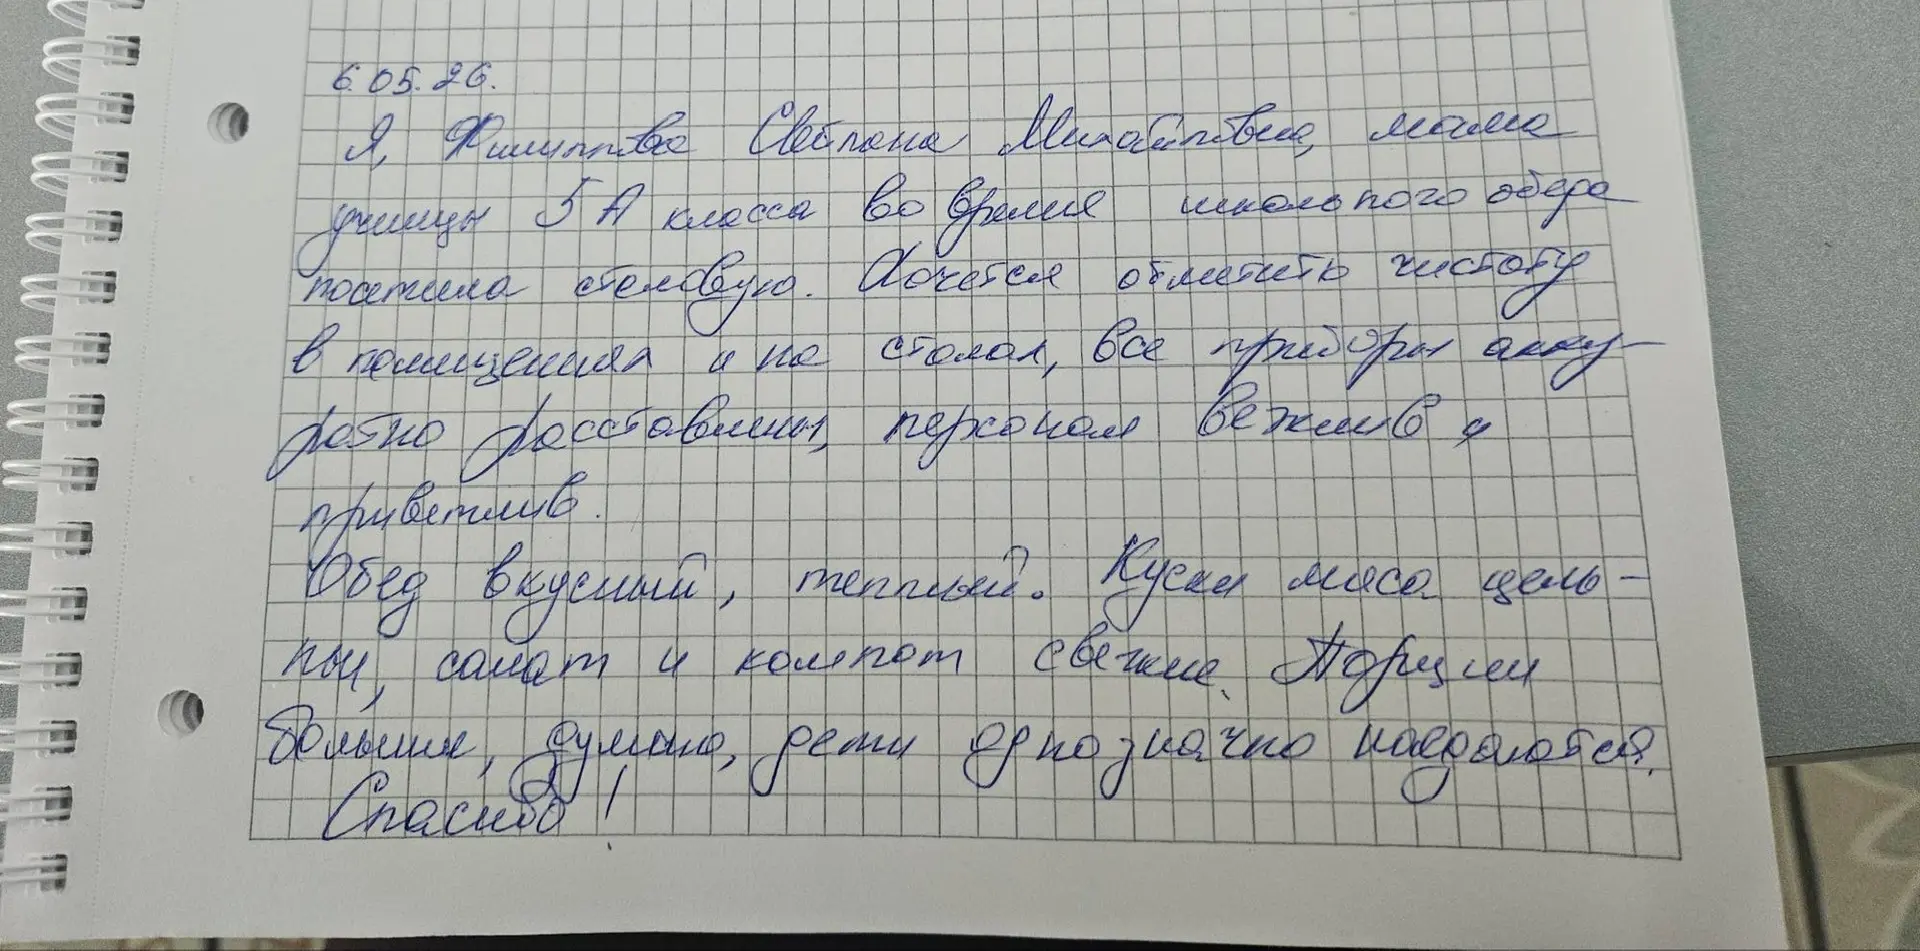 6.05.26.
Я, Филиппова Светлана Михайловна, мама
ученицы 5 А класса во время школьного обеда
посетила столовую. Хочется отметить чистоту
в помещениях и на столах, все приборы акку-
ратно расставлены, персонал вежлив и
приветлив.
Обед вкусный, теплый. Куски мяса цель-
ны, салат и компот свежие. Порции
большие, думаю, дети однозначно наедаются.
Спасибо!